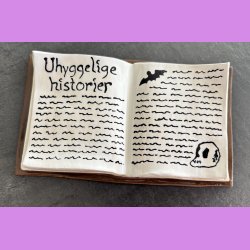 Uhyggelige
historier